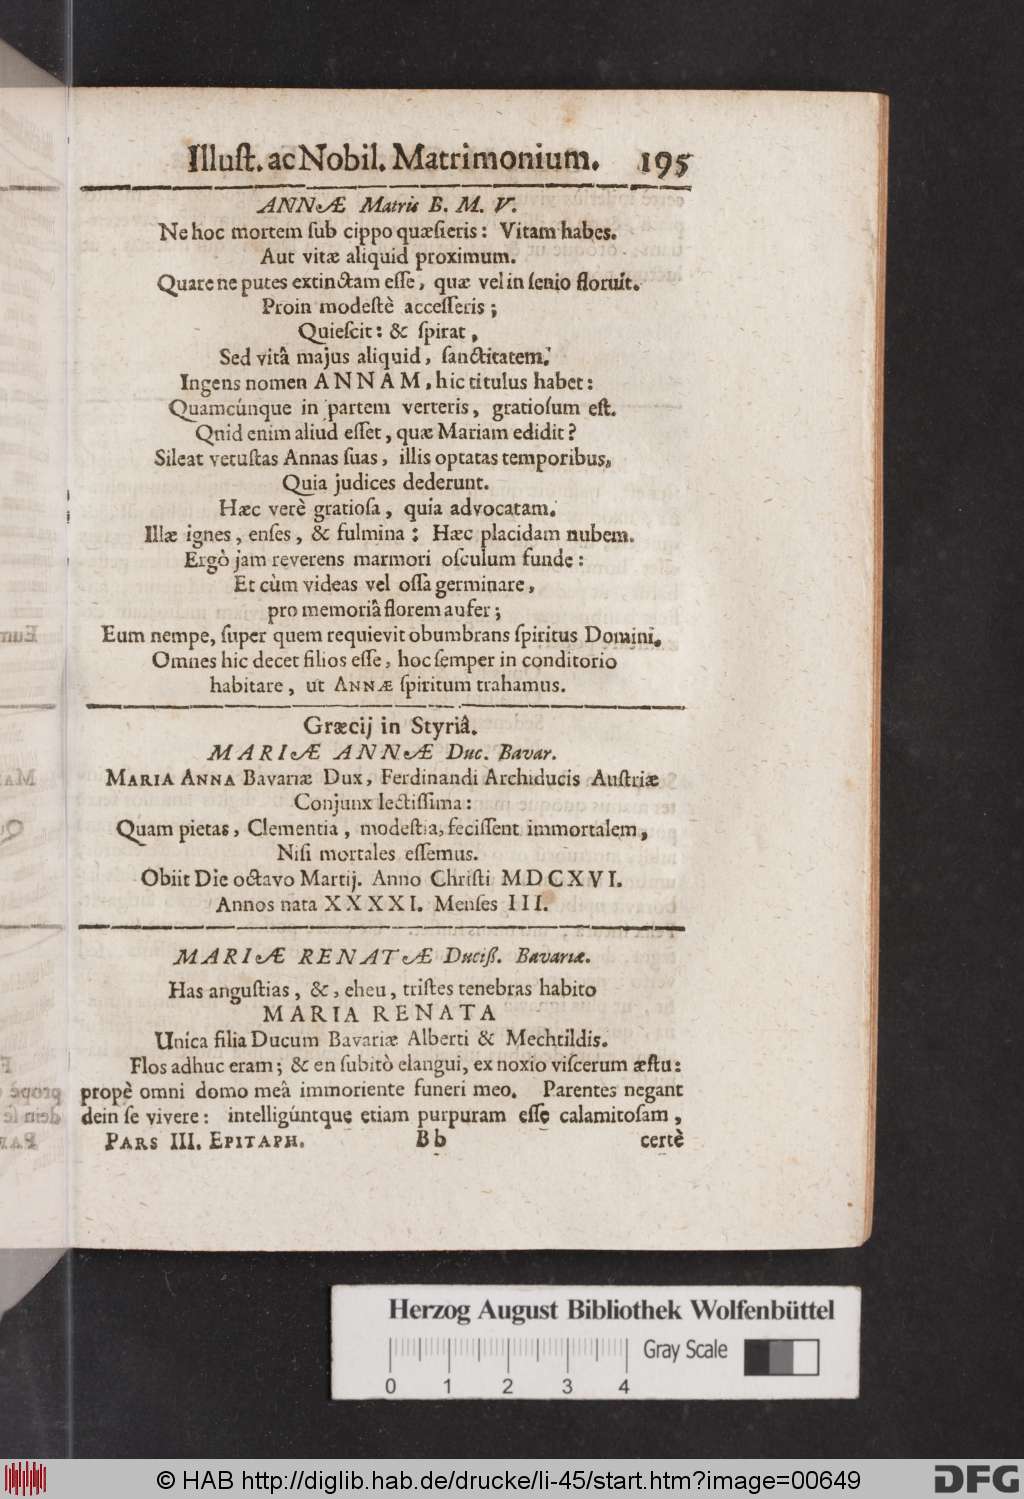 Illuſt. ac Nobil. Matrimonium. 195
ANNÆ Matris B. M. V.
Ne hoc mortem ſub cippo quæſieris: Vitam habes.
Aut vitæ aliquid proximum.
Quare ne putes extinctam eſſe, quæ vel in ſenio floruit.
Proin modeſtè acceſſeris;
Quieſcit: & ſpirat,
Sed vitâ majus aliquid, ſanctitatem.
Ingens nomen ANNAM, hic titulus habet:
Quamcúnque in partem verteris, gratioſum eſt.
Qnid enim aliud eſſet, quæ Mariam edidit?
Sileat vetuſtas Annas ſuas, illis optatas temporibus,
Quia judices dederunt.
Hæc verè gratioſa, quia advocatam.
Illæ ignes, enſes, & fulmina: Hæc placidam nubem.
Ergò jam reverens marmori oſculum funde:
Et cùm videas vel oſſa germinare,
pro memoriâ florem aufer;
Eum nempe, ſuper quem requievit obumbrans ſpiritus Domini.
Omnes hic decet filios eſſe, hoc ſemper in conditorio
habitare, ut ANNÆ ſpiritum trahamus.
Græcij in Styriâ.
MARIÆ ANNÆ Duc. Bavar.
MARIA ANNA Bavariæ Dux, Ferdinandi Archiducis Auſtriæ
Conjunx lectiſſima:
Quam pietas, Clementia, modeſtia, feciſſent immortalem,
Niſi mortales eſſemus.
Obiit Die octavo Martij. Anno Chriſti MDCXVI.
Annos nata XXXXI. Menſes III.
MARIÆ RENATÆ Duciß. Bavariæ.
Has anguſtias, &, eheu, triſtes tenebras habito
MARIA RENATA
Unica filia Ducum Bavariæ Alberti & Mechtildis.
Flos adhuc eram; & en ſubitò elangui, ex noxio viſcerum æſtu:
propè omni domo meâ immoriente funeri meo. Parentes negant
dein ſe vivere: intelligúntque etiam purpuram eſſe calamitoſam,
PARS III. EPITAPH. Bb certè
Herzog August Bibliothek Wolfenbüttel
Gray Scale
0 1 2 3 4
© HAB http://diglib.hab.de/drucke/li-45/start.htm?image=00649
DFG